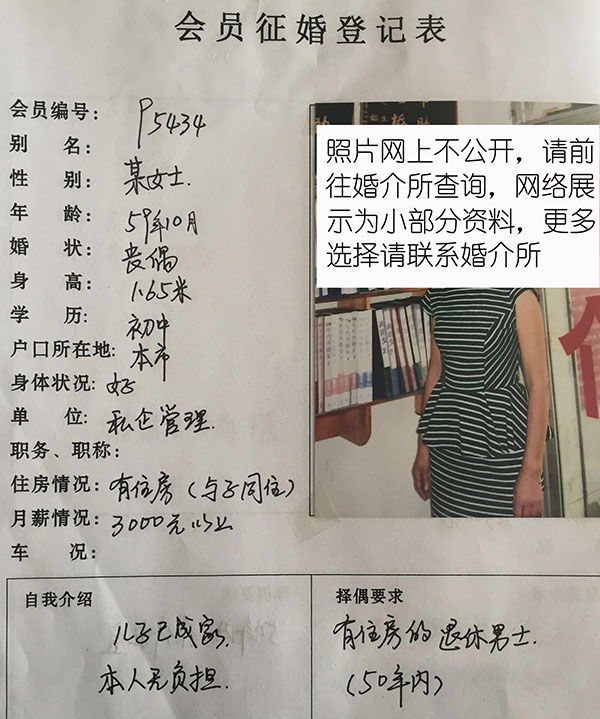 会员征婚登记表
会员编号: P5434
别 名:
性 别: 某女士.
年 龄: 59年10月
婚 状: 丧偶
身 高: 1.65米
学 历: 初中
户口所在地: 本市
身体状况: 好
单 位: 私企管理.
职务、职称:
住房情况: 有住房（与子同住）
月薪情况: 3000元以上
车 况:
照片网上不公开，请前
往婚介所查询，网络展
示为小部分资料，更多
选择请联系婚介所
自我介绍
儿子已成家.
本人无负担.
择偶要求
有住房的退休男士.
（50年内）